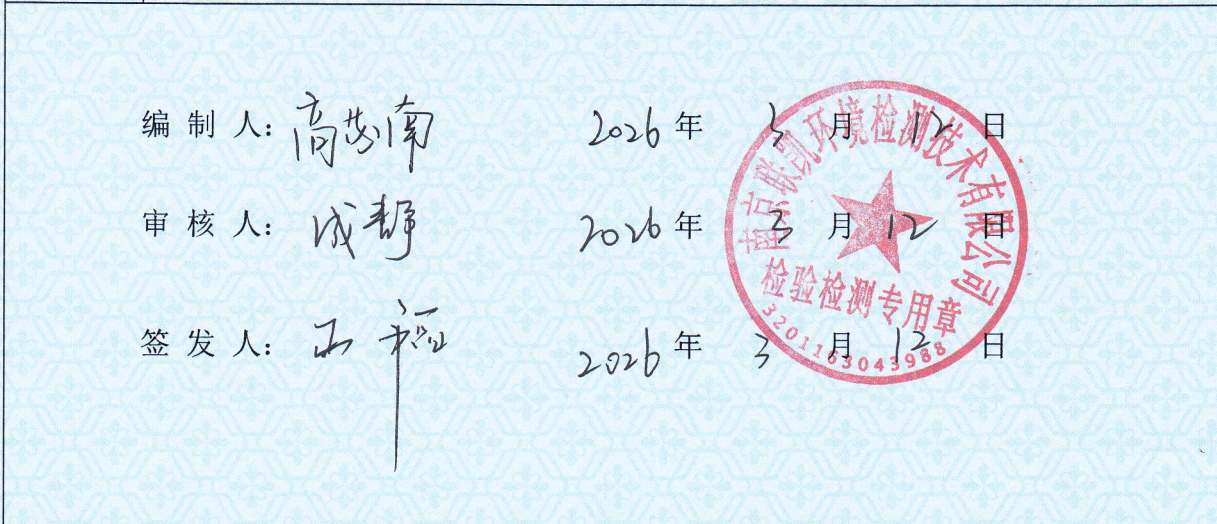 编 制 人: 高 南 2026 年 3 月 12 日
审 核 人: 成静 2026 年 3 月 12 日
签 发 人: 2026 年 3 月 12 日
南京联凯环境检测技术有限公司
检验检测专用章
3201163043988